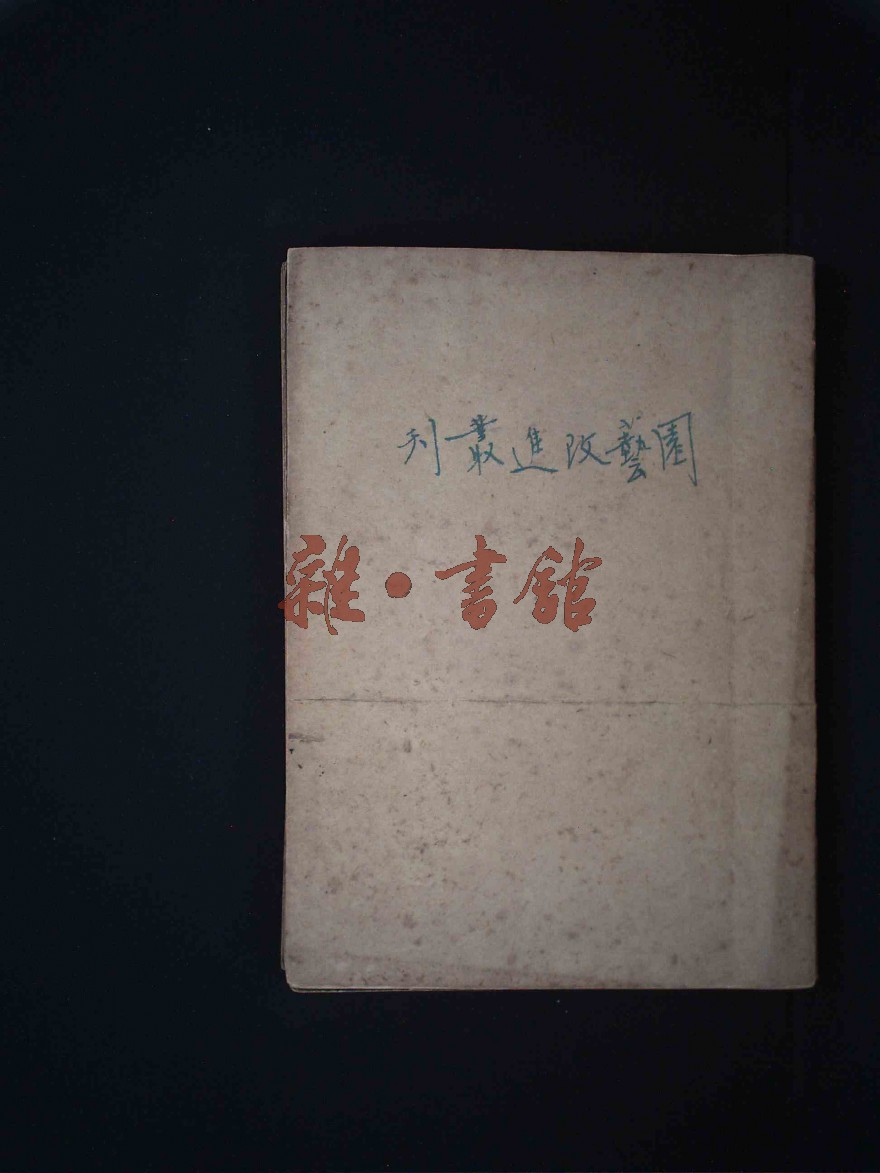 園藝改進叢刊
雜·書館